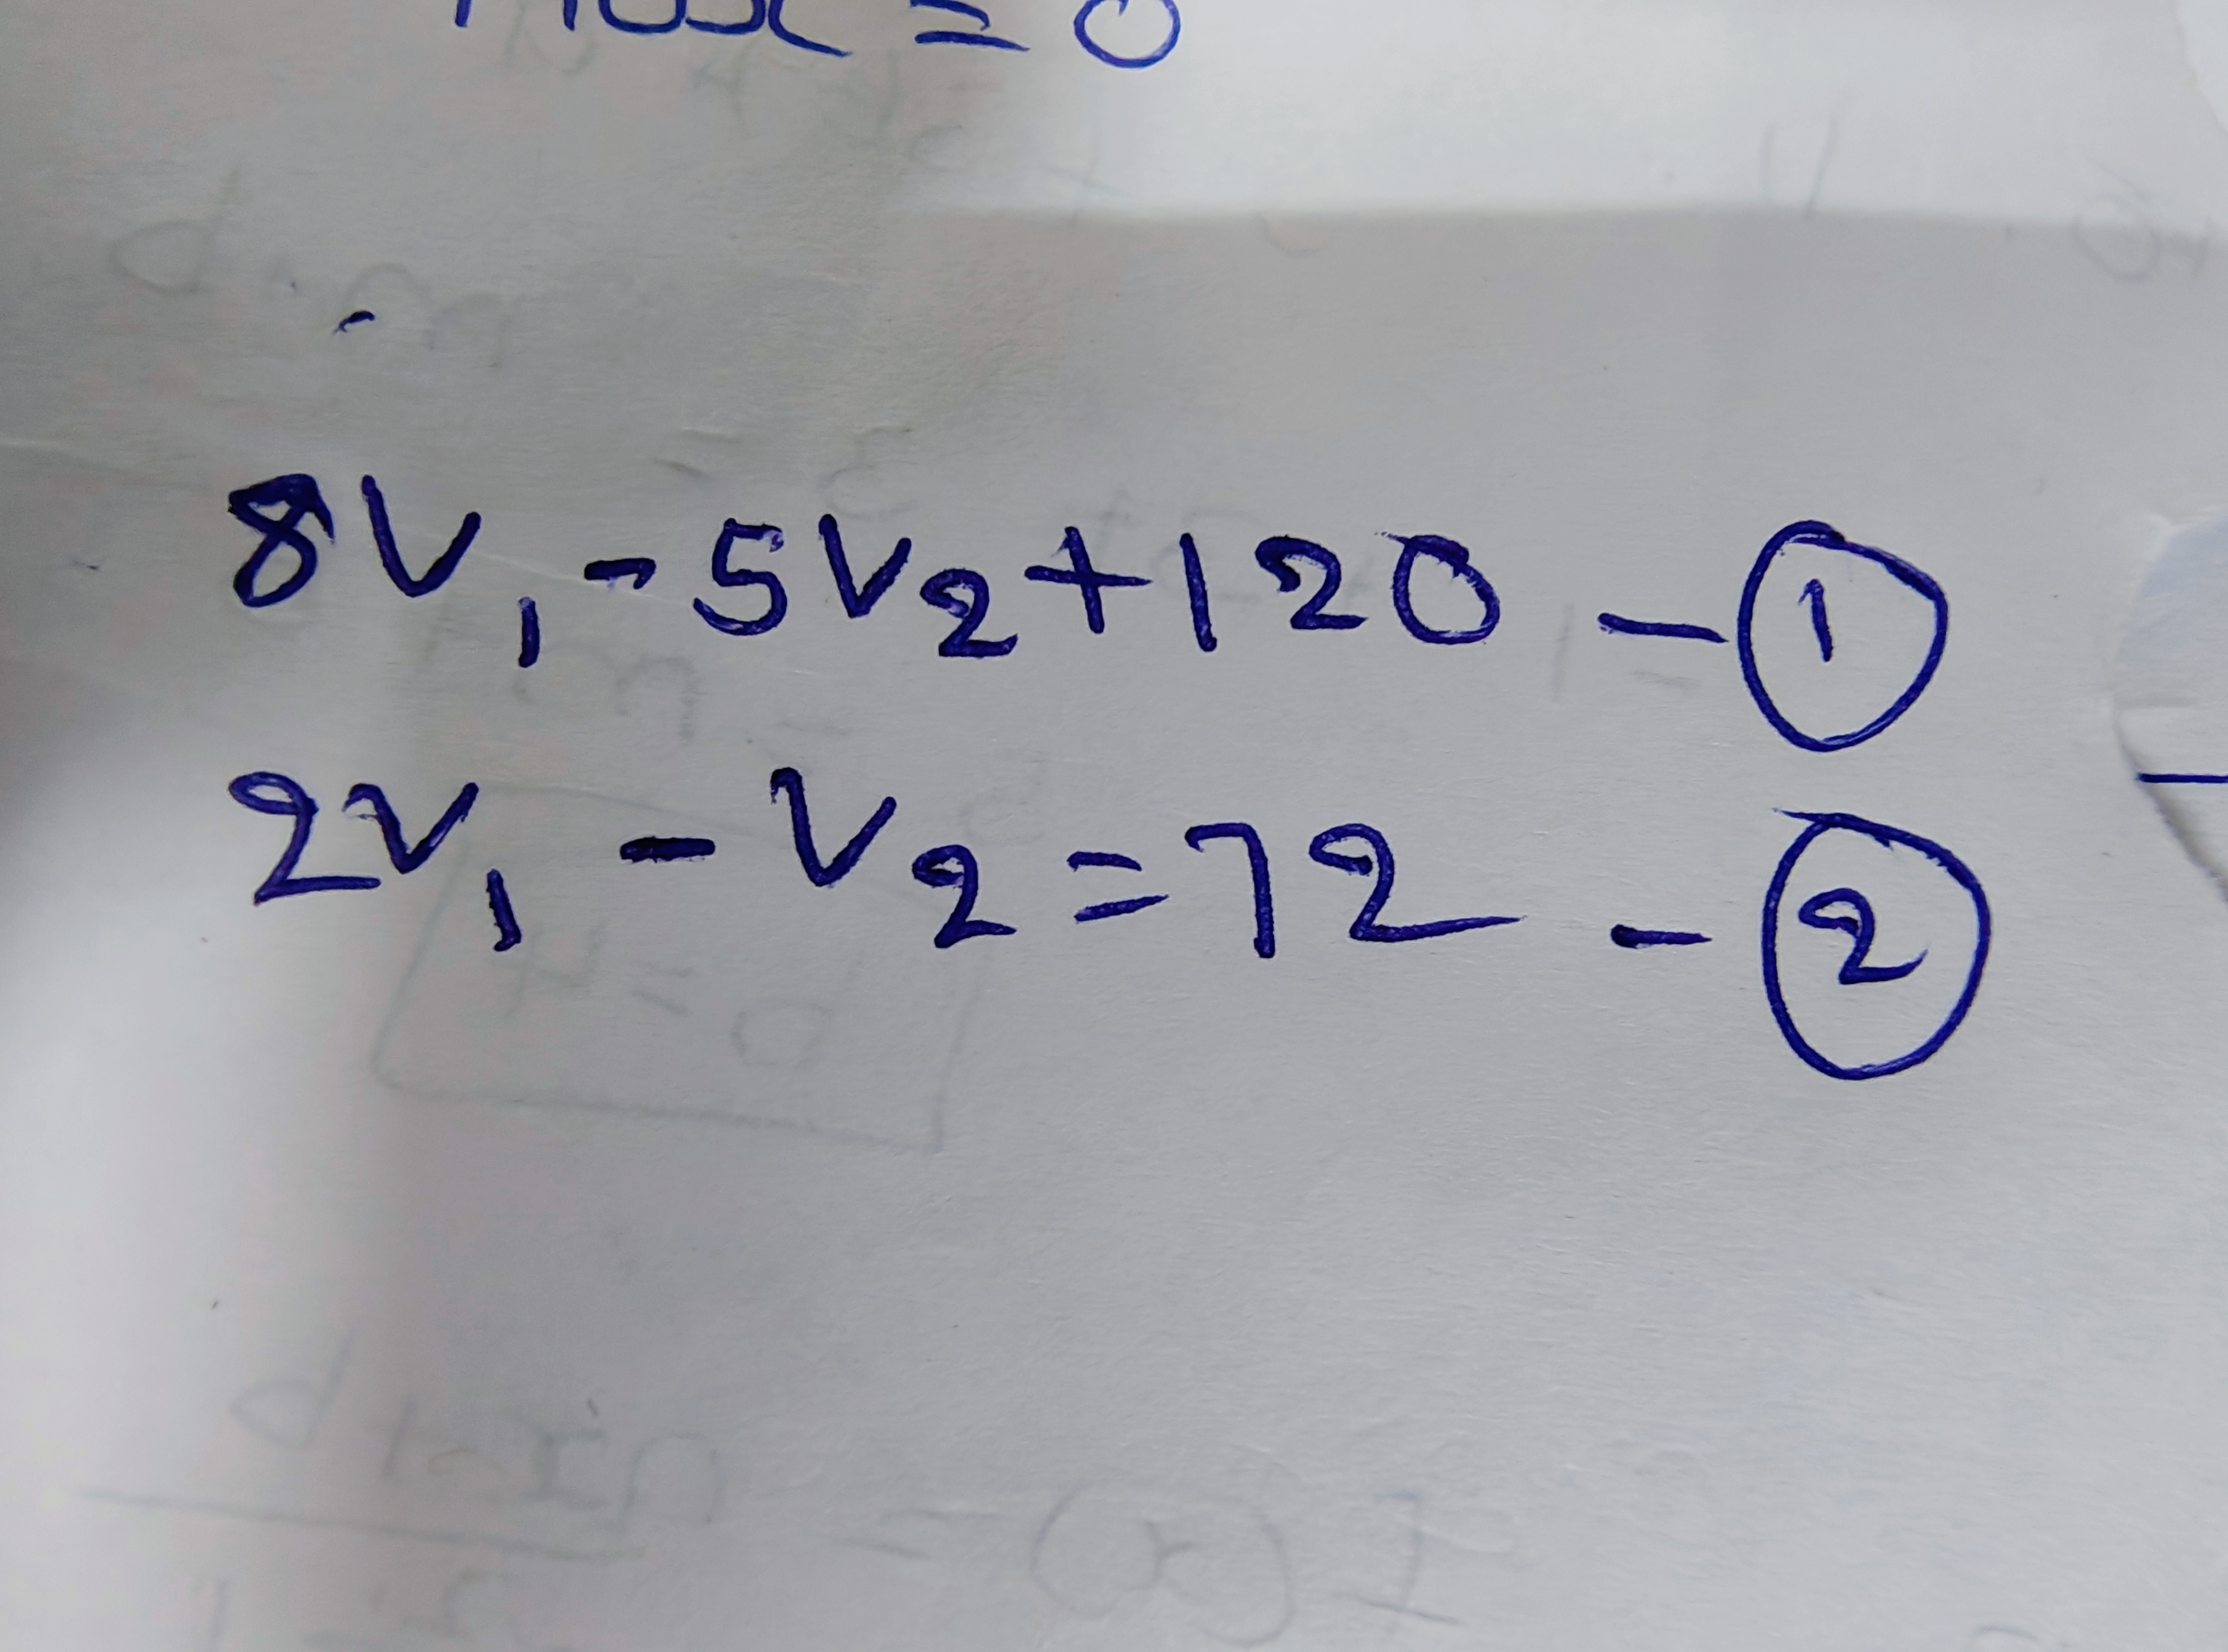 8V₁ - 5V₂ + 120 - ①
2V₁ - V₂ = 72 - ②